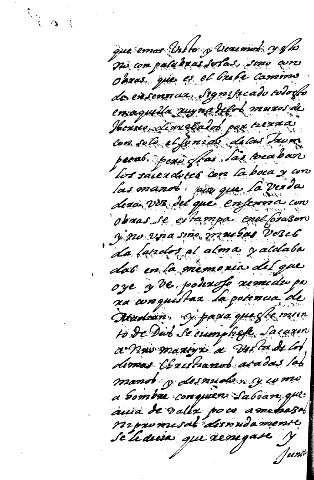 que emos Visto y Veremos, y esto
no con palabras solas, sino con
obras, que es el brebe camino
de ensenar, significado todo esto
en aquella ruyna de los muros de
derribados por tierra
con solo el sonido de las Trom
petas, pero estas, las tocaban
los sacerdotes con la boca y con
las manos, por que la Verda
dera voz del que ensena con
obras se estampa en el corazon
y no una sino muchas Vezes
da latidos al alma y aldaba
das en la memoria del que
oye y Ve, poderoso remedio pa
ra conquistar la potencia de
y para que este min
to de Dios se cumpliese, sacaron
a Nro martyr a Vista de los
demas Christianos atadas las
manos y desnudo, y como
a hombre con quien sabian que
avia de valer poco amenazas
ni promesas desnudamente
se le decia que renegase y
Junt